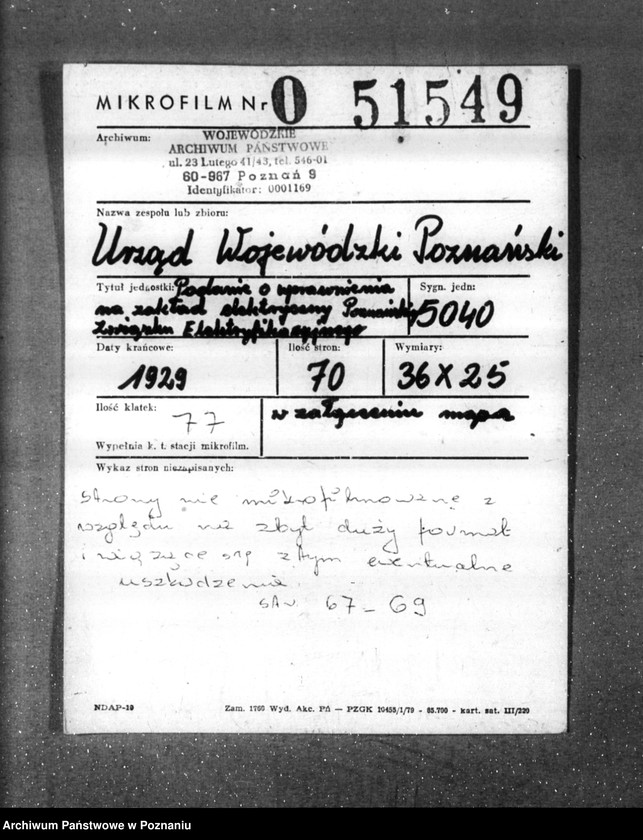 MIKROFILM Nr O 51549
Archiwum: WOJEWÓDZKIE
ARCHIWUM PAŃSTWOWE
ul. 23 Lutego 41/43, tel. 546-01
60-967 Poznań 9
Identyfikator: 0001169
Nazwa zespołu lub zbioru:
Urząd Wojewódzki Poznański
Tytuł jednostki: Podanie o uprawnienia
na zakład elektryczny Poznańskiego
Związku Elektryfikacyjnego
Sygn. jedn:
5040
Daty krańcowe:
1929
Ilość stron:
70
Wymiary:
36 X 25
Ilość klatek:
77
Wypełnia k. t. stacji mikrofilm.
w załączeniu mapa
Wykaz stron niezapisanych:
Strony nie mikrofilmowane z
względu na zbyt duży format
i wiążące się z tym ewentualne
uszkodzenie
str. 67-69
NDAP-19
Zam. 1760 Wyd. Akc. Pń — PZGK 10455/1/79 - 85.700 - kart. sat. III/220
Archiwum Państwowe w Poznaniu